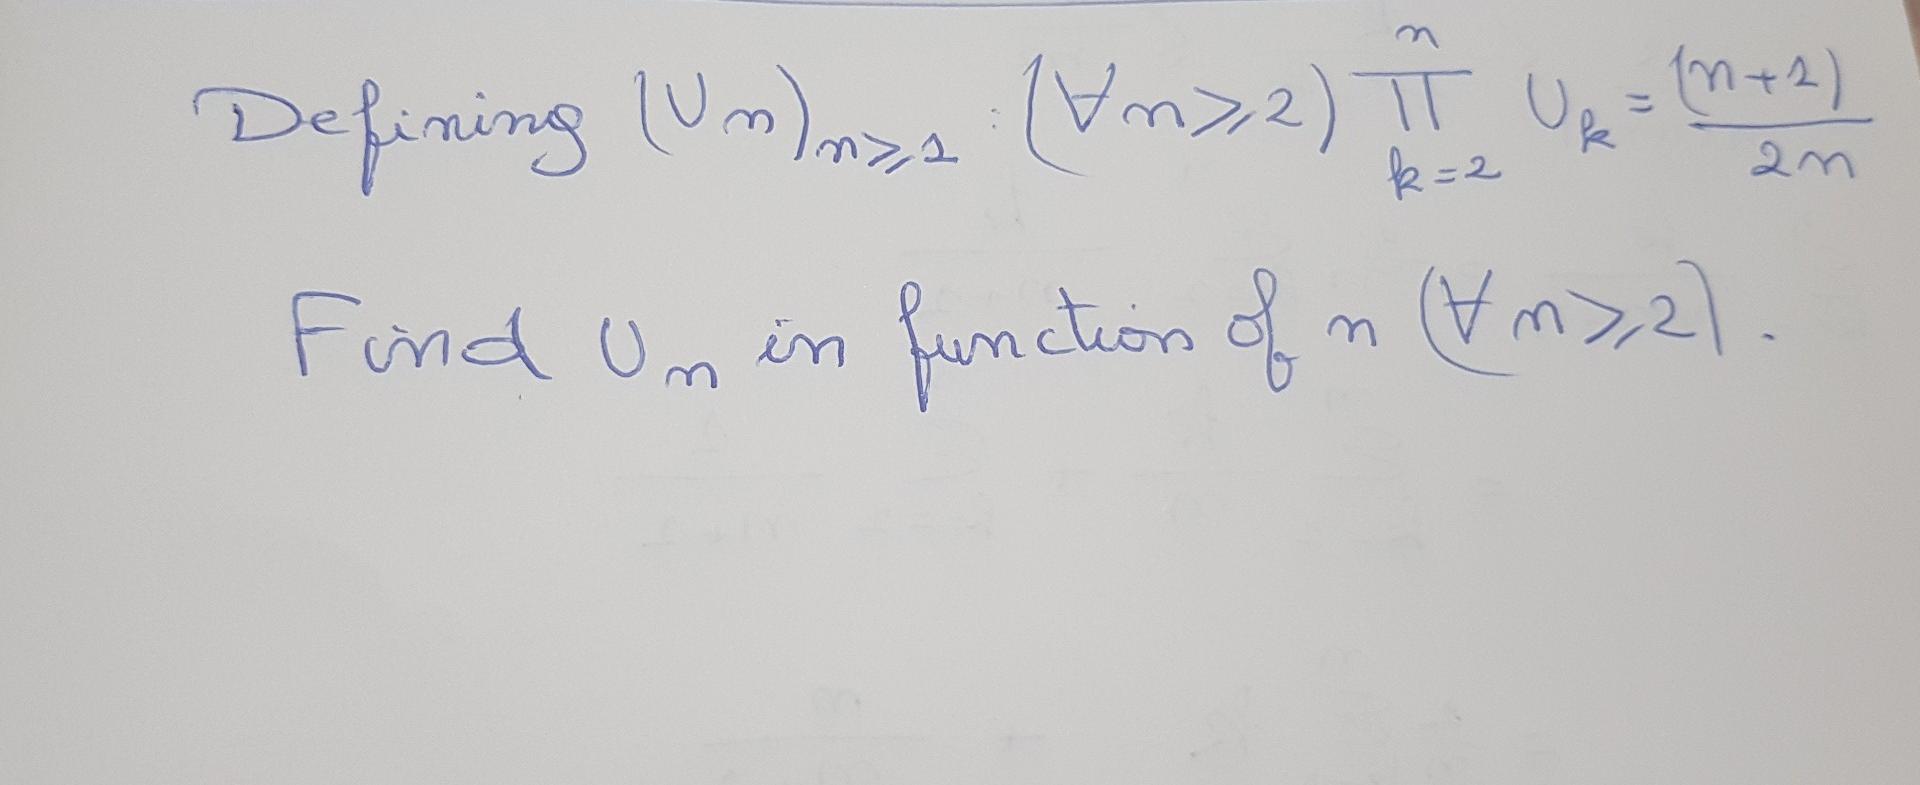 Defining (Uₙ)ₙ⩾₁ : (∀n⩾2) ∏_{k=2}^{n} U_k = (n+1)/2n
Find Uₙ in function of n (∀n⩾2).